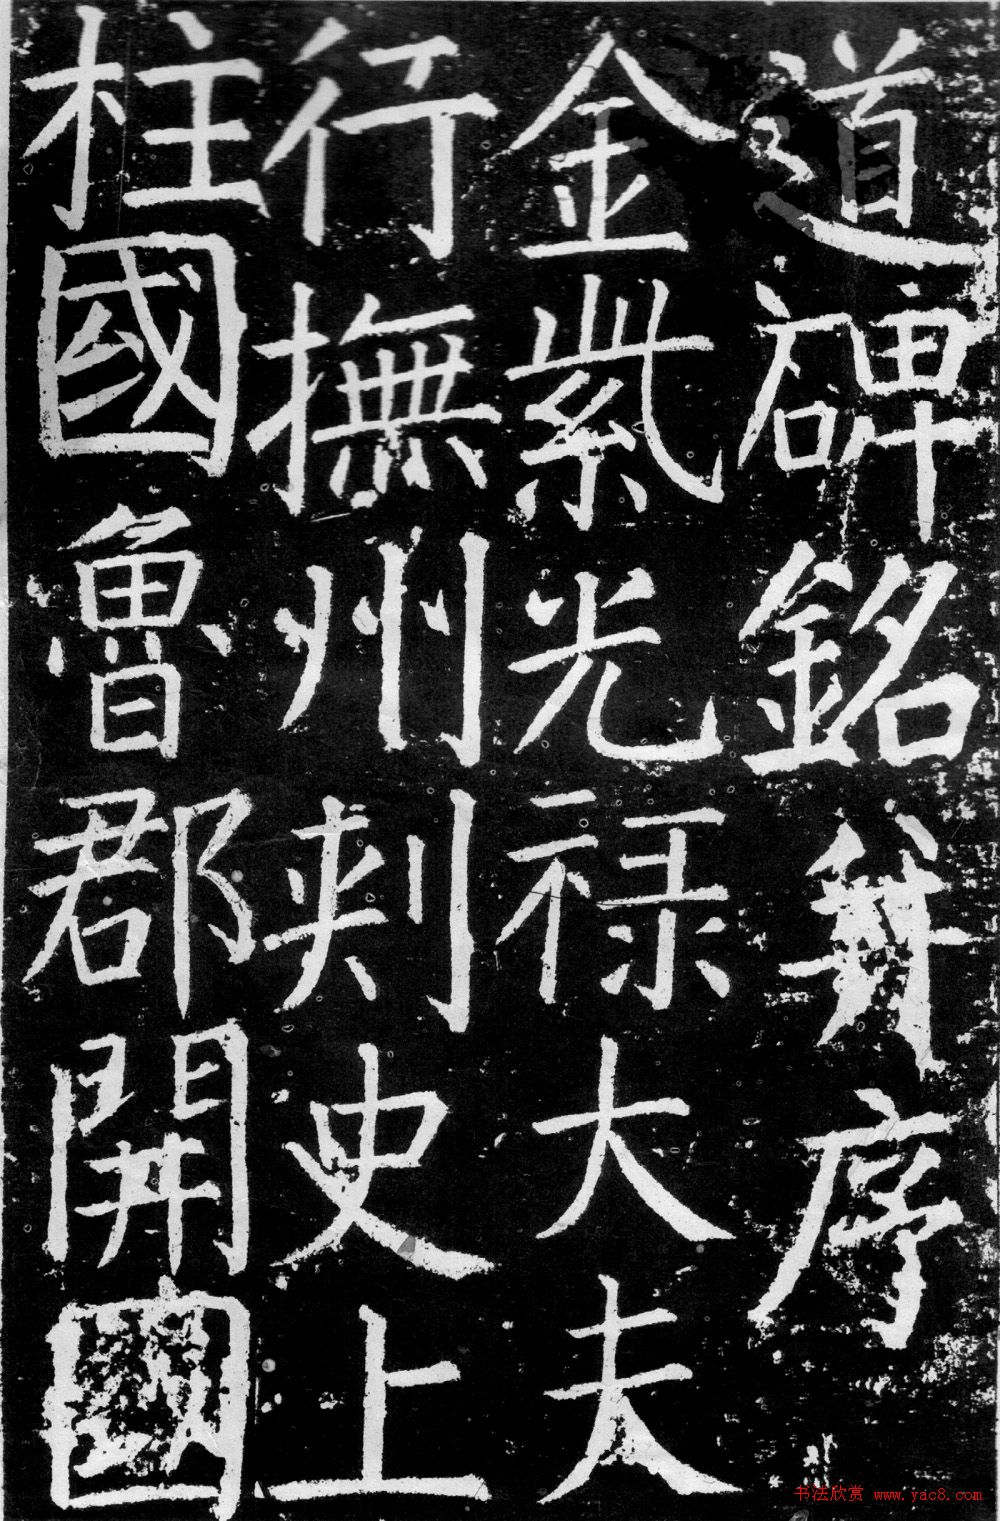 道碑銘并序
金紫光祿大夫
行撫州刺史上
柱國魯郡開國
书法欣赏 www.yac8.com